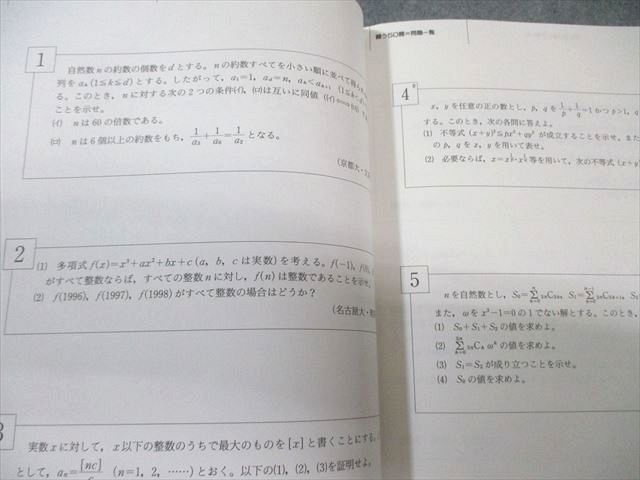 1
自然数nの約数の個数をdとする。nの約数すべてを小さい順に並べて得られ
列をaₖ(1≦k≦d)とする。したがって,a₁=1,a_d=n,aₖ<aₖ₊₁(1≦k<d)
る。このとき,nに対する次の2つの条件(イ),(ロ)は互いに同値
ことを示せ。
(イ) nは60の倍数である。
(ロ) nは6個以上の約数をもち,1/a₃+1/a₆=1/a₂となる。
(京都大・
2
(1) 多項式f(x)=x³+ax²+bx+c(a,b,cは実数)を考える。f(-1),
がすべて整数ならば,すべての整数nに対し,f(n)は整数であることを示せ。
(2) f(1996),f(1997),f(1998)がすべて整数の場合はどうか?
(名古屋大・
3
実数xに対して,x以下の整数のうちで最大のものを[x]と書くことにする。
として,aₙ=[nc]/c (n=1,2,……)とおく。以下の(1),(2),(3)を証明せよ。
闘う50題=問題一覧
4
x,yを任意の正の数とし,p,qを1/p+1/q=1かつp>1,q
する。このとき,次の各問に答えよ。
(1) 不等式(x+y)²≦px²+qy²が成立することを示せ。また
のp,qをx,yを用いて表せ。
(2) 必要ならば,
等を用いて,次の不等式(x+y)
5
nを自然数とし,S₀=
また,ωをx³-1=0の1でない解とする。このとき,
(1) S₀+S₁+S₂の値を求めよ。
(2) Σ ₃ₙCₖ ωᵏの値を求めよ。
(3) S₁=S₂が成り立つことを示せ。
(4) S₀の値を求めよ。